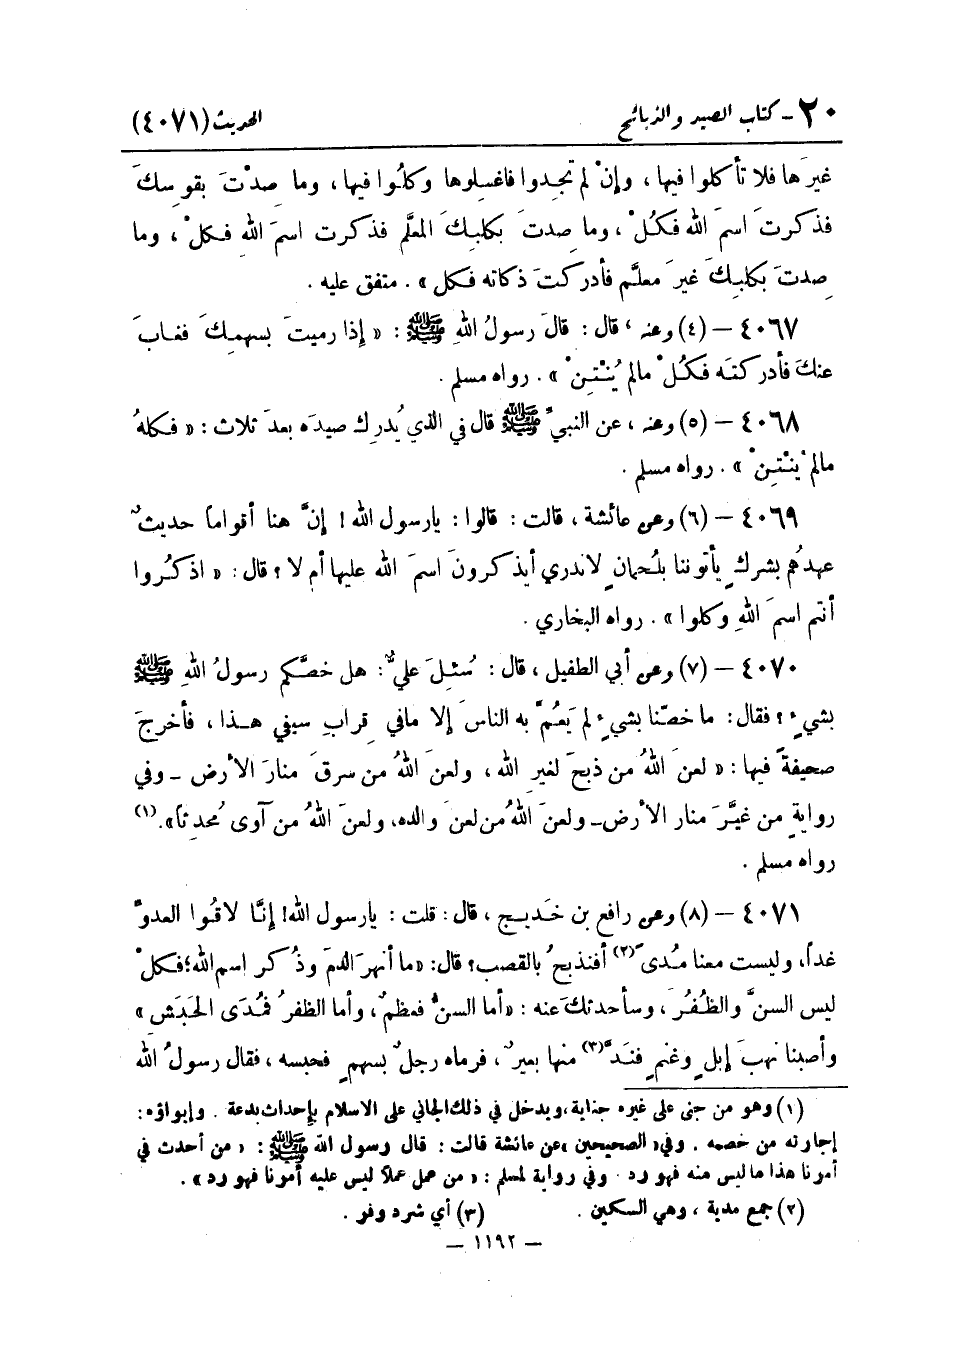 ٢٠ - كتاب الصيد والذبائح الحديث (٤٠٧١)
غيرَها فلا تأكلوا فيها ، وإنْ لم تجِدوا فاغسِلوها وكلُوا فيها ، وما صِدْتَ بقوسِكَ
فذكرتَ اسمَ اللهِ فكُلْ ، وما صدتَ بكلبِكَ المعلَّمِ فذكرت اسمَ اللهِ فكلْ ، وما
صِدتَ بكلبِكَ غيرَ معلَّمٍ فأدركتَ ذكاته فكل » . متفق عليه .
٤٠٦٧ – (٤) وعنه ، قال : قالَ رسولُ اللهِ ﷺ : « إذا رميتَ بسهمِكَ فغابَ
عنكَ فأدركتَه فكُلْ مالم يُنْتِنْ » . رواه مسلم .
٤٠٦٨ – (٥) وعنه ، عن النبيِّ ﷺ قال في الذي يُدرِك صيدَه بعدَ ثلاث : « فكلهُ
مالم يُنْتِنْ » . رواه مسلم .
٤٠٦٩ – (٦) وعن عائشة ، قالت : قالوا : يارسول الله ! إنَّ هنا أقواماً حديثٌ
عهدُهم بشركٍ يأتوننا بلُحمانٍ لاندري أيذكرونَ اسمَ اللهِ عليها أم لا ؟ قال : « اذكُروا
أنتم اسمَ اللهِ وكلوا » . رواه البخاري .
٤٠٧٠ – (٧) وعن أبي الطفيل ، قال : سُئلَ عليٌّ : هل خصَّكم رسولُ اللهِ ﷺ
بشيءٍ ؟ فقال : ما خصّنا بشيءٍ لم يَعُمَّ به الناسَ إلا مافي قِرابِ سيفي هذا ، فأخرجَ
صحيفةً فيها : « لعنَ اللهُ من ذبحَ لغيرِ الله ، ولعنَ اللهُ من سرقَ منارَ الأرضِ – وفي
روايةٍ من غيَّرَ منار الأرض – ولعنَ اللهُ من لعنَ والده، ولعنَ اللهُ من آوى مُحدِثاً».(١)
رواه مسلم .
٤٠٧١ – (٨) وعن رافع بن خَديج ، قال : قلت : يارسول الله! إنَّا لاقُوا العدوِّ
غداً، وليست معنا مُدىً(٢) أفنذبحُ بالقصب؟ قال: «ما أنهرَ الدمَ وذُكر اسم الله؛ فكلْ
ليس السنَّ والظُفُرَ ، وسأحدثكَ عنه : «أما السنُّ فعظمٌ، وأما الظفرُ فمُدَى الحَبَشِ »
وأصبنا نهبَ إبلٍ وغنمٍ فنَدَّ(٣) منها بعيرٌ، فرماه رجلٌ بسهمٍ فحبسه ، فقال رسولُ الله
(١) وهو من جنى على غيره جناية، ويدخل في ذلك الجاني على الاسلام بإحداث بدعة . وإيواؤه :
إجارته من خصمه . وفي « الصحيحين » عن عائشة قالت : قال رسول الله ﷺ : « من أحدث في
أمرنا هذا ما ليس منه فهو رد . وفي رواية لمسلم : « من عمل عملاً ليس عليه أمرنا فهو رد » .
(٢) جمع مدية ، وهي السكين . (٣) أي شرد وفر .
– ١١٩٢ –